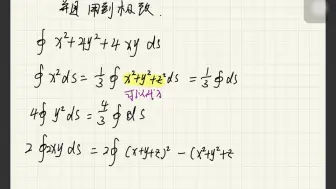 并通 用到极致.
∮ x²+4y²+4xy ds
∮ x²ds = 1/3 ∮ x²+y²+z² ds = 1/3 ∮ ds
可以代入
4∮ y² ds = 4/3 ∮ ds
2∮2xy ds = 2∮ (x+y+z)² - (x²+y²+z